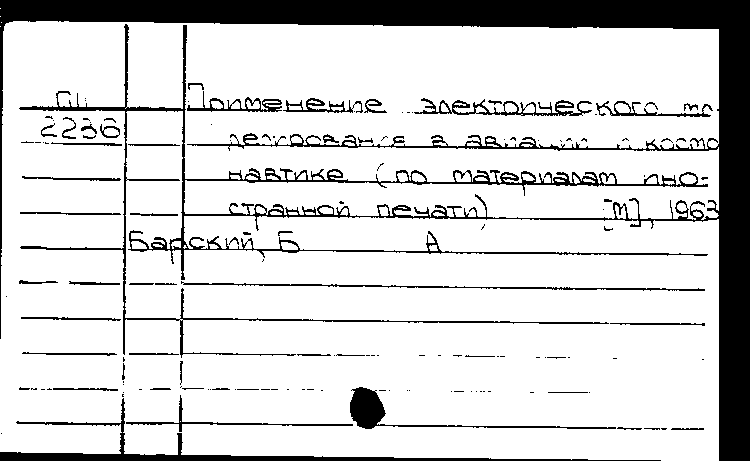 ПШ Применение электрического мо-
2236 делирования в авиации и космо
навтике (по материалам ино-
странной печати) [М], 1963
Барский, Б А